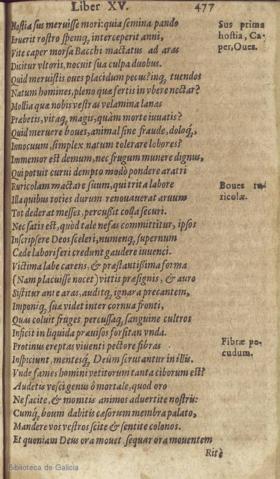 Liber XV. 477
Hostia sus meruisse mori: quia semina pando
Eruerit rostro spemq́; interceperit anni,
Vite caper morsa Bacchi mactatus ad aras
Dicitur vltoris, nocuit sua culpa duobus.
Quid meruistis oues placidum pecus? inq́; tuendos
Natum homines, pleno quæ fertis in vbere nectar?
Mollia quæ nobis vestras velamina lanas
Præbetis, vitaq́; magis, quam morte iuuatis?
Quid meruere boues, animal sine fraude, doloq́;,
Innocuum, simplex natum tolerare labores?
Immemor est demum, nec frugum munere dignus,
Qui potuit curui dempto modo pondere aratri
Ruricolam mactare suum, qui trita labore
Illa quibus toties durum renouauerat aruum
Tot dederat messes, percussit colla securi.
Nec satis est, quod tale nefas committitur, ipsos
Inscripsere Deos sceleri, numenq́; supernum
Cæde laboriferi credunt gaudere iuuenci.
Victima labe carens, & præstantissima forma
(Nam placuisse nocet) vittis præsignis, & auro
Sistitur ante aras, auditq́; ignara precantem,
Imponiq́; sua videt inter cornua fronti,
Quas coluit fruges percussaq́; sanguine cultros
Inficit in liquida præuisos forsitan vnda.
Protinus ereptas viuenti pectore fibras
Inspiciunt, mentesq́; Deûm scrutantur in illis.
Vnde fames homini vetitorum tanta ciborum est?
Audetis vesci genus ô mortale, quod oro
Ne facite, & monitis animos aduertite nostris:
Cumq́; boum dabitis cæsorum membra palato,
Mandere vos vestros scite & sentite colonos.
Et quoniam Deus ora mouet, sequar ora mouentem
Ritè
Sus prima
hostia, Ca-
per, Oues.
Boues ru-
ricolæ.
Fibræ pe-
cudum.
Biblioteca de Galicia